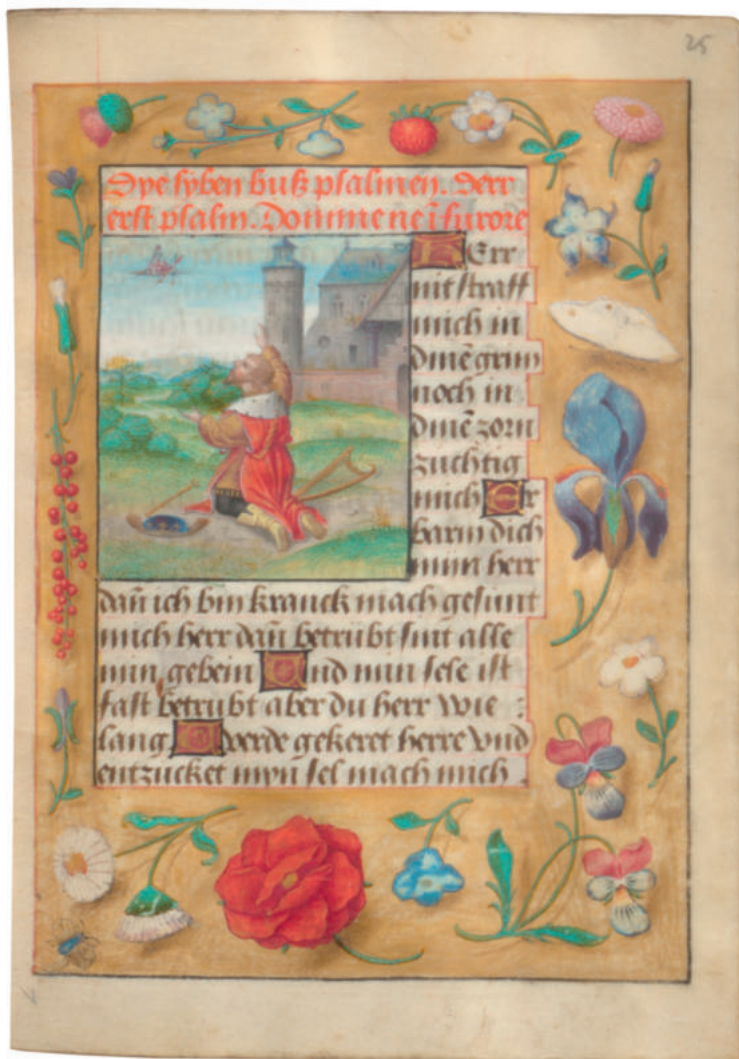 25
Dye syben buß psalmen. Derr
erst psalm. Domine ne ī furore
HErr
nit straff
mich in
dinē grim
noch in
dinē zorn
zuchtig
mich Er
barm dich
min herr
dañ ich bin kranck mach gesunt
mich herr dañ betrübt sint alle
min gebein Und min sele ist
fast betrubt aber du herr wie
lang Werde gekeret herre vnd
entzucket myn sel mach mich